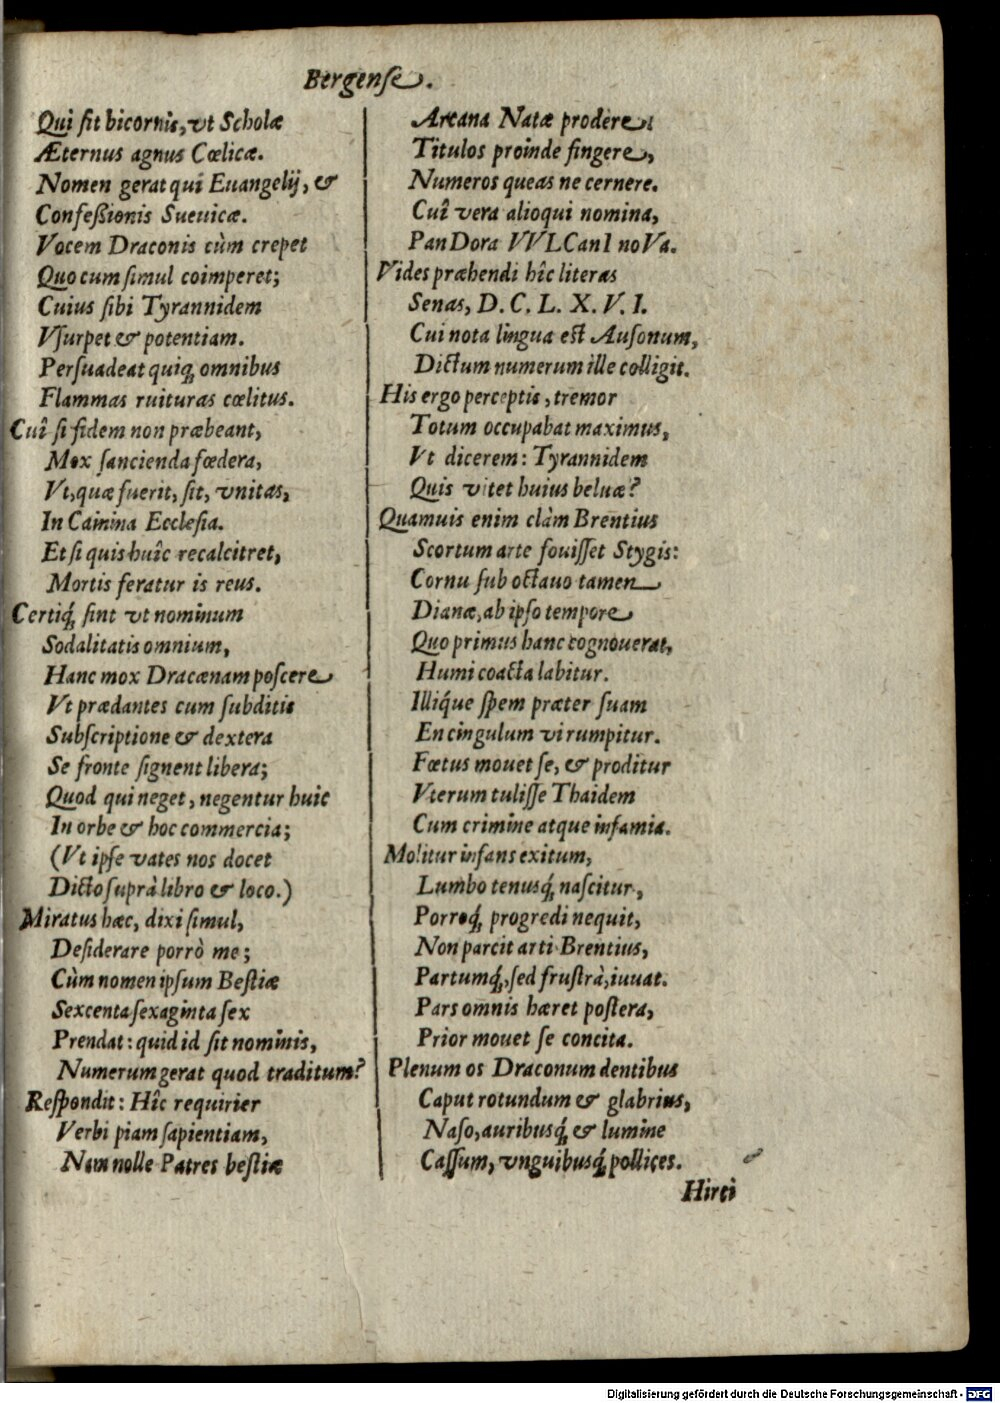 Bergense.
Qui ſit bicornis, vt Scholæ
Æternus agnus Cœlicæ.
Nomen gerat qui Euangelij, &
Confeßionis Sueuicæ.
Vocem Draconis cùm crepet
Quo cum ſimul coimperet;
Cuius ſibi Tyrannidem
Vſurpet & potentiam.
Perſuadeat quiq́; omnibus
Flammas ruituras cœlitus.
Cuî ſi fidem non præbeant,
Mox ſancienda fœdera,
Vt, quæ fuerit, ſit, vnitas,
In Caînina Eccleſia.
Et ſi quis huîc recalcitret,
Mortis feratur is reus.
Certiq́; ſint vt nominum
Sodalitatis omnium,
Hanc mox Dracænam poſcere
Vt prædantes cum ſubditis
Subſcriptione & dextera
Se fronte ſignent libera;
Quod qui neget, negentur huic
In orbe & hoc commercia;
(Vt ipſe vates nos docet
Dicto ſuprà libro & loco.)
Miratus hæc, dixi ſimul,
Deſiderare porrò me;
Cùm nomen ipſum Beſtiæ
Sexcenta ſexaginta ſex
Prendat: quid id ſit nominis,
Numerum gerat quod traditum?
Reſpondit: Hîc requirier
Verbi piam ſapientiam,
Nam nolle Patres beſtiæ
Arcana Natæ prodere:
Titulos proinde fingere,
Numeros queas ne cernere.
Cuî vera alioqui nomina,
PanDora VVLCanI noVa.
Vides præhendi hîc literas
Senas, D. C. L. X. V. I.
Cui nota lingua eſt Auſonum,
Dictum numerum ille colligit.
His ergo perceptis, tremor
Totum occupabat maximus,
Vt dicerem: Tyrannidem
Quis vitet huius beluæ?
Quamuis enim clàm Brentius
Scortum arte fouiſſet Stygis:
Cornu ſub octauo tamen
Dianæ, ab ipſo tempore
Quo primus hanc cognouerat,
Humi coacta labitur.
Illiq́ue ſpem præter ſuam
En cingulum vi rumpitur.
Fœtus mouet ſe, & proditur
Vterum tuliſſe Thaidem
Cum crimine atque infamia.
Molitur infans exitum,
Lumbo tenusq́; naſcitur,
Porroq́; progredi nequit,
Non parcit arti Brentius,
Partumq́;, ſed fruſtrà, iuuat.
Pars omnis hæret poſtera,
Prior mouet ſe concita.
Plenum os Draconum dentibus
Caput rotundum & glabrius,
Naſo, auribusq́; & lumine
Caſſum, vnguibusq́; pollices.
Hirti
Digitalisierung gefördert durch die Deutsche Forschungsgemeinschaft - DFG